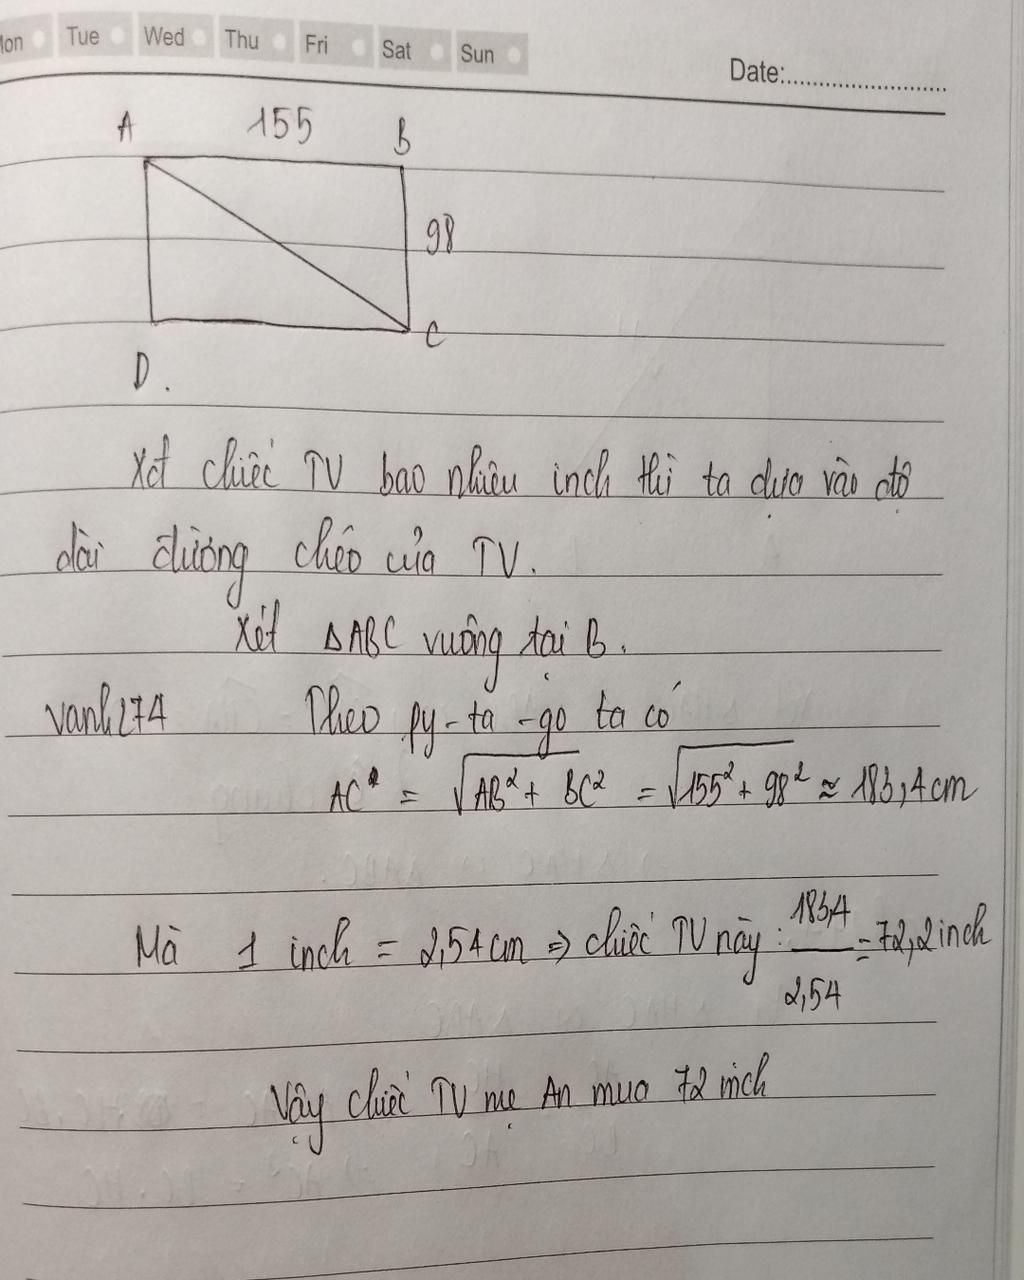 Mon Tue Wed Thu Fri Sat Sun
Date:
A 155 B
98
D. C
Xét chiếc TV bao nhiêu inch thì ta dựa vào độ
dài đường chéo của TV.
Xét ΔABC vuông tại B.
vanh274 Theo py-ta-go ta có
AC = √AB² + BC² = √155² + 98² ≈ 183,4 cm
Mà 1 inch = 2,54 cm ⇒ chiếc TV này : 183,4 / 2,54 = 72,2 inch
Vậy chiếc TV mẹ An mua 72 inch